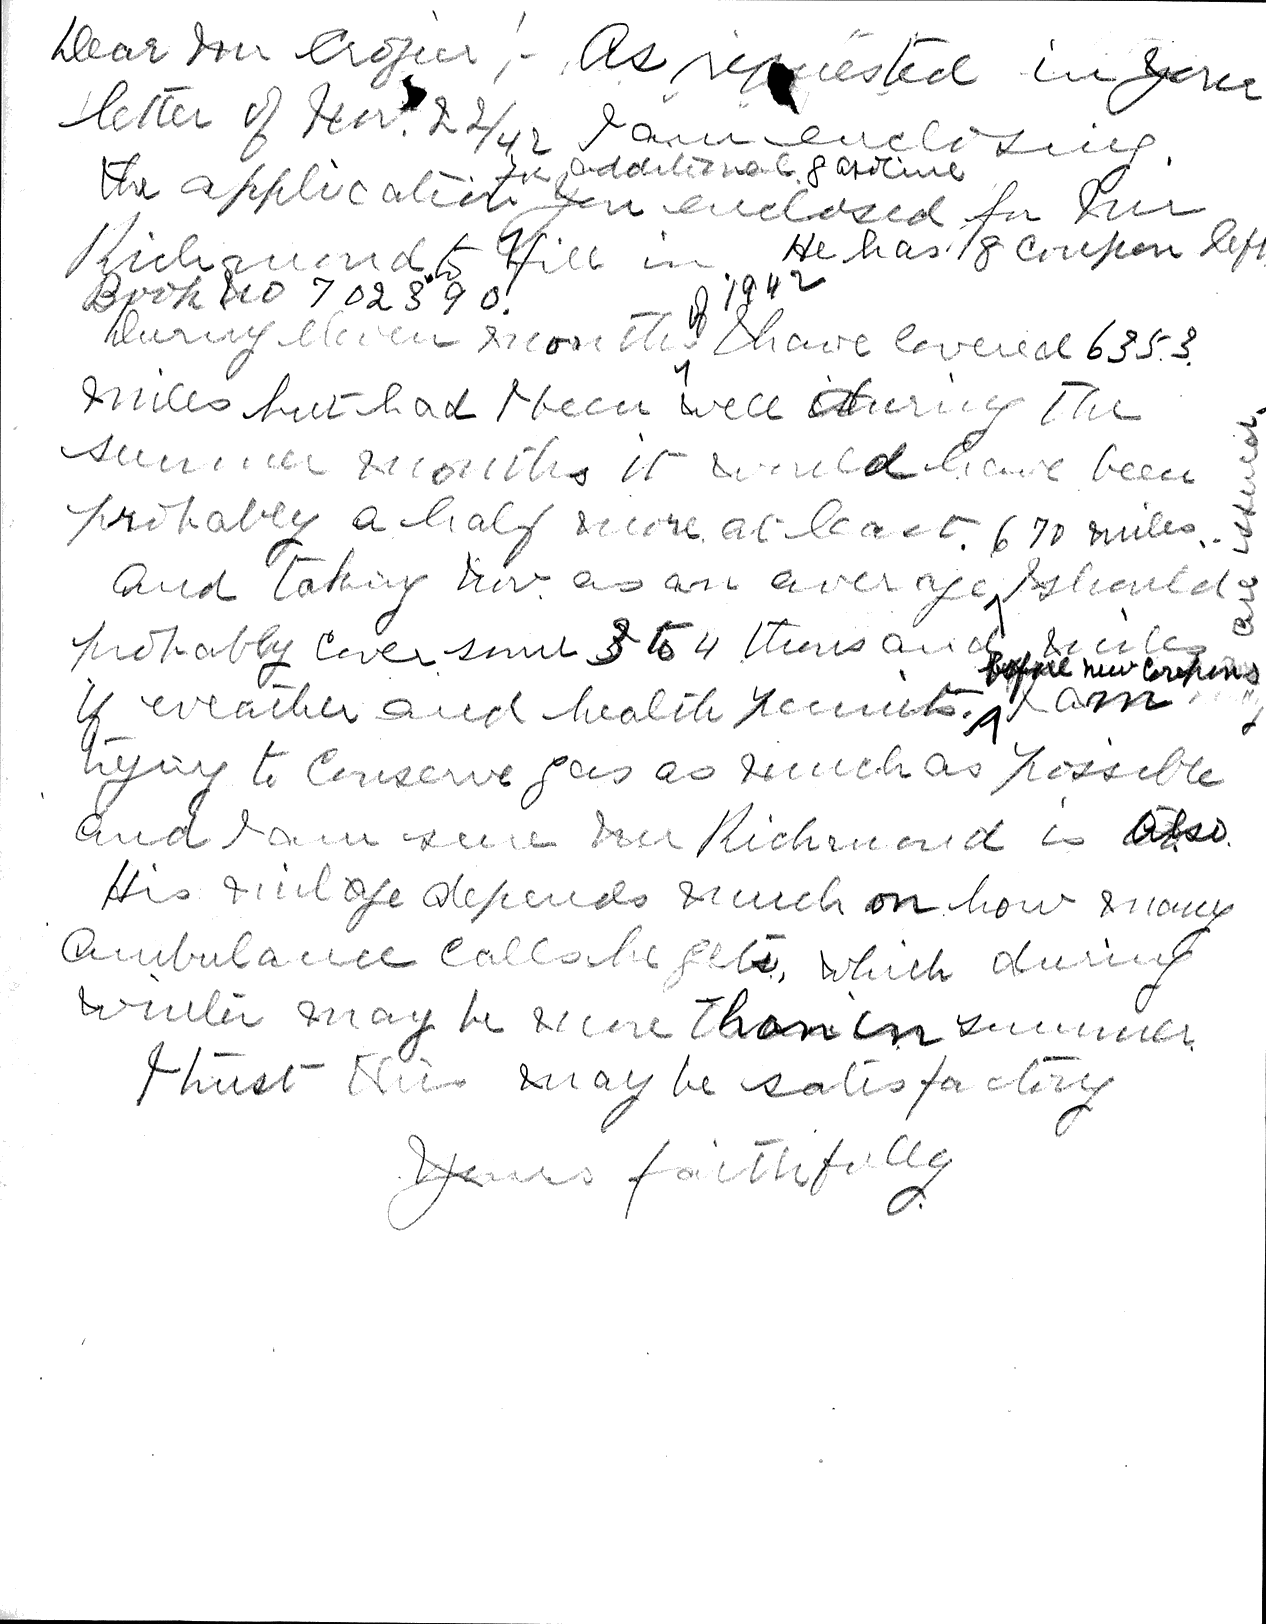 Dear Mr Crozier,!- As requested in your
letter of Nov. 22/42 I am enclosing
for additional gasoline
the application you enclosed for Mr
Richmond to fill in. He has 18 coupon left
Book No 702390.
of 1942
During eleven months I have covered 6353
miles but had I been well during the
summer months it would have been
probably a half more at least. 670 miles..
and taking Nov. as an average I should
probably cover some 3 to 4 thousand miles
before new coupons
if weather and health permits. I am
are issued.
trying to conserve gas as much as possible
and I am sure Mr Richmond is also.
His milage depends much on how many
ambulance calls he gets, which during
winter may be more than in summer.
I trust this may be satisfactory
Yours faithfully.